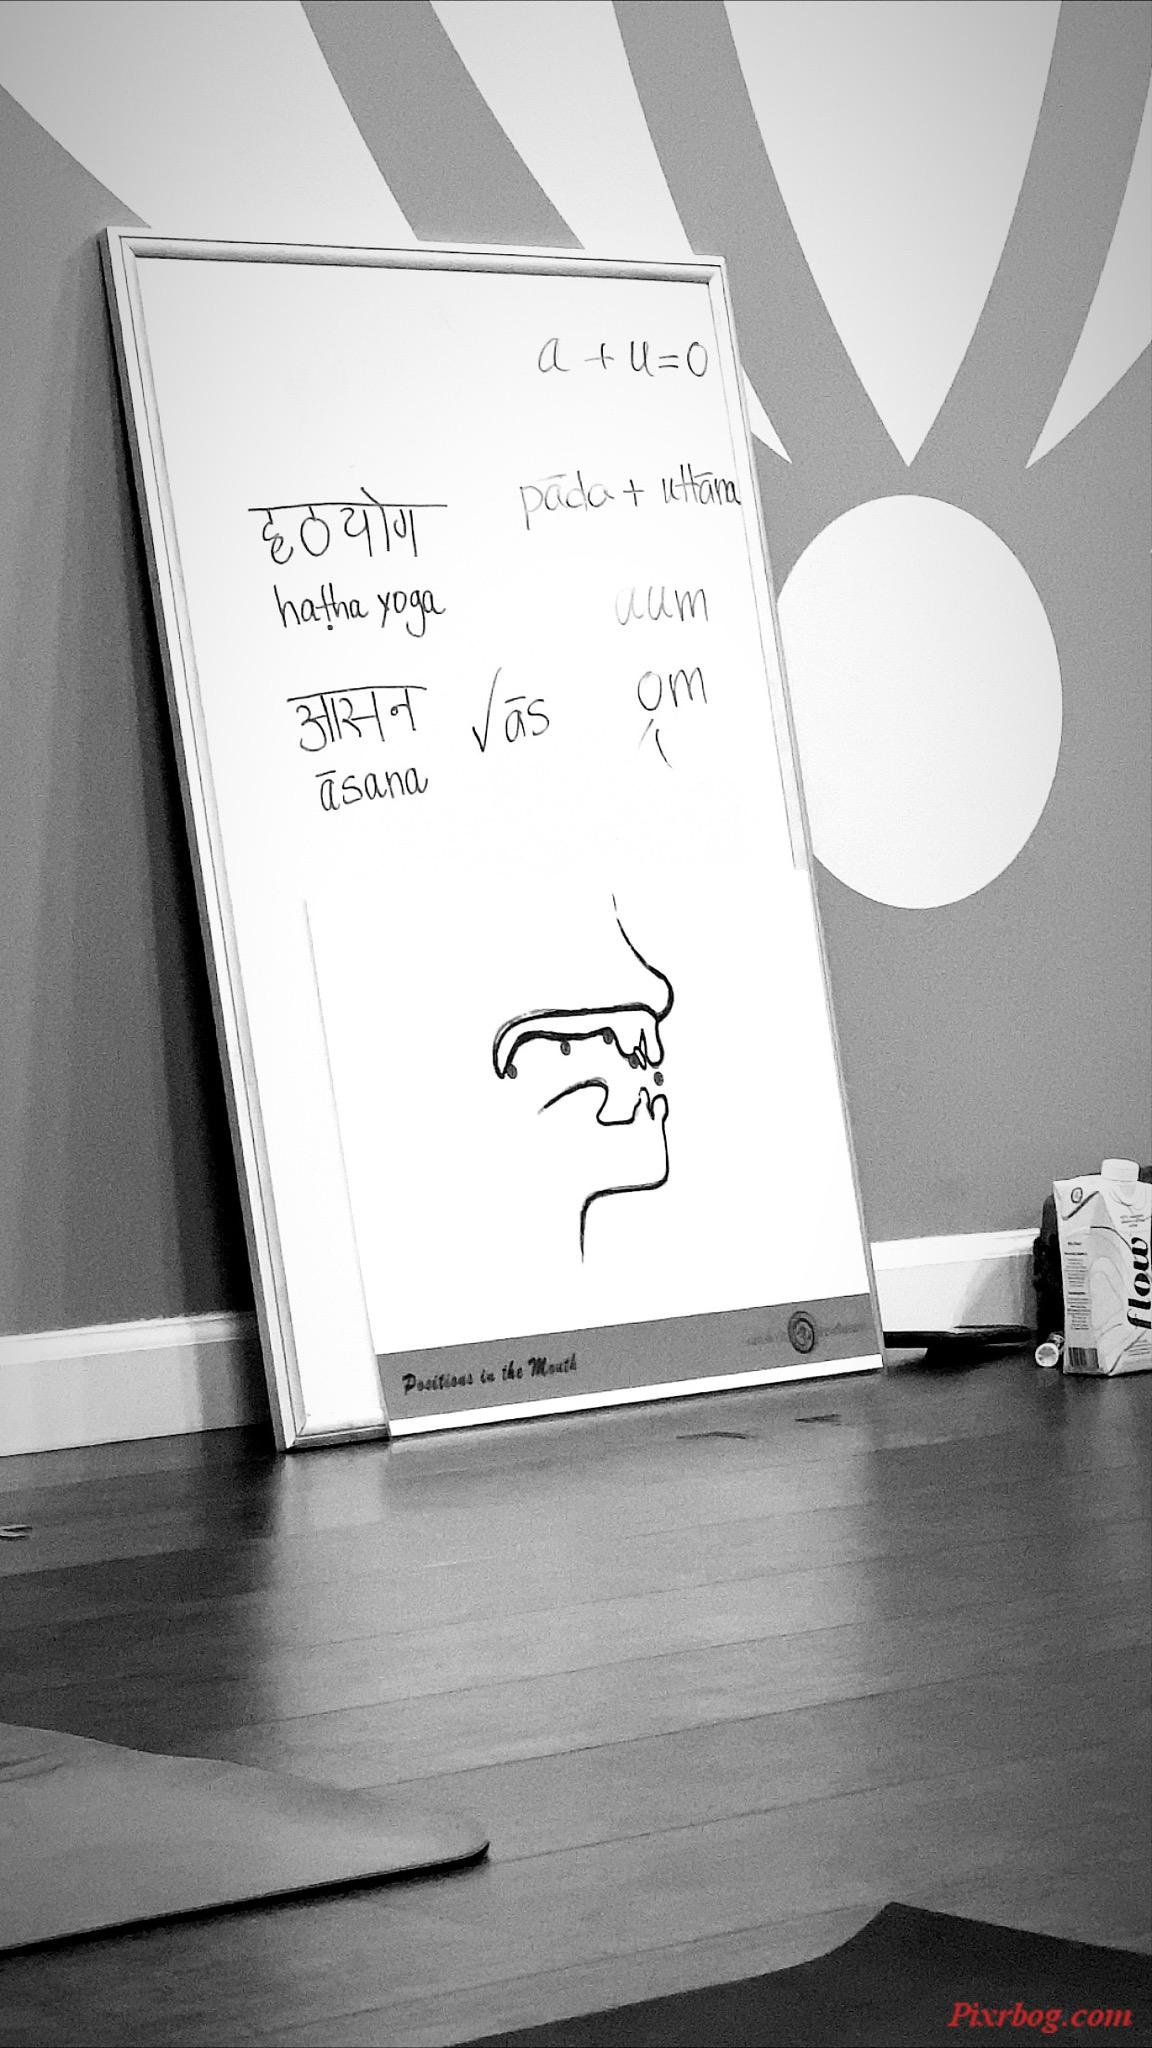 a + u = o
pāda + uttāna
हठयोग
haṭha yoga
aum
om
आसन √ās
āsana
Positions in the Mouth
flow
Pixrbog.com